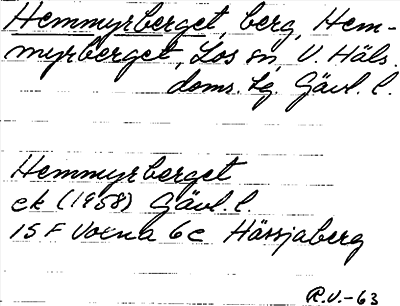 Hemmyrberget, berg, Hem-
myrberget, Los sn, V. Häls.
doms. lg, Gävl. l.
Hemmyrberget
ek (1958) Gävl. l.
15 F Voxna 6c Hässjaberg
R.V.-63